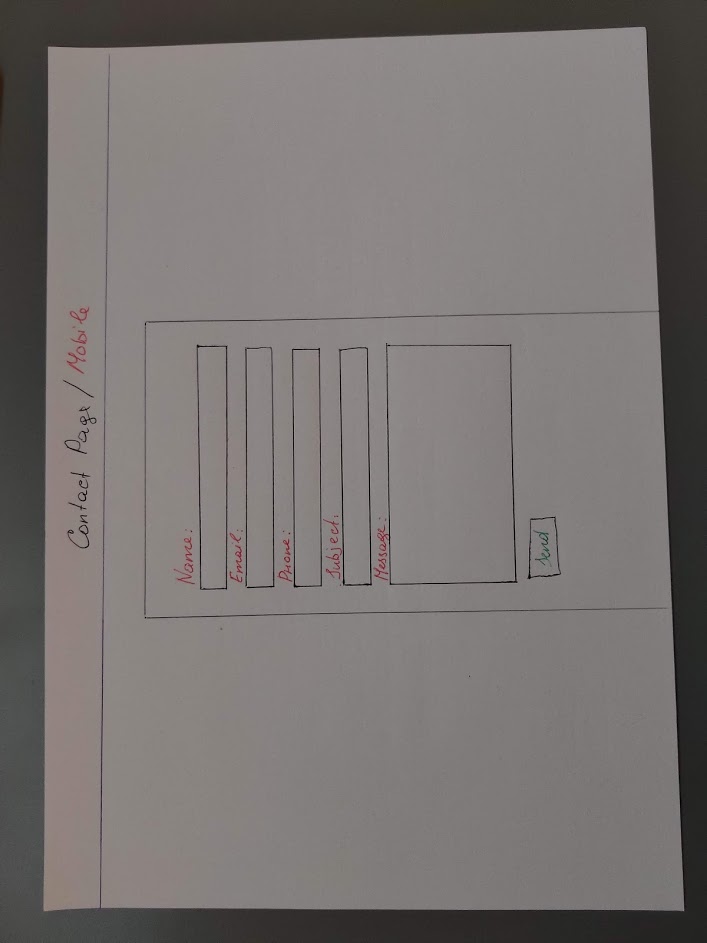 Contact Page / Mobile
Name:
Email:
Phone:
Subject:
Message:
Send